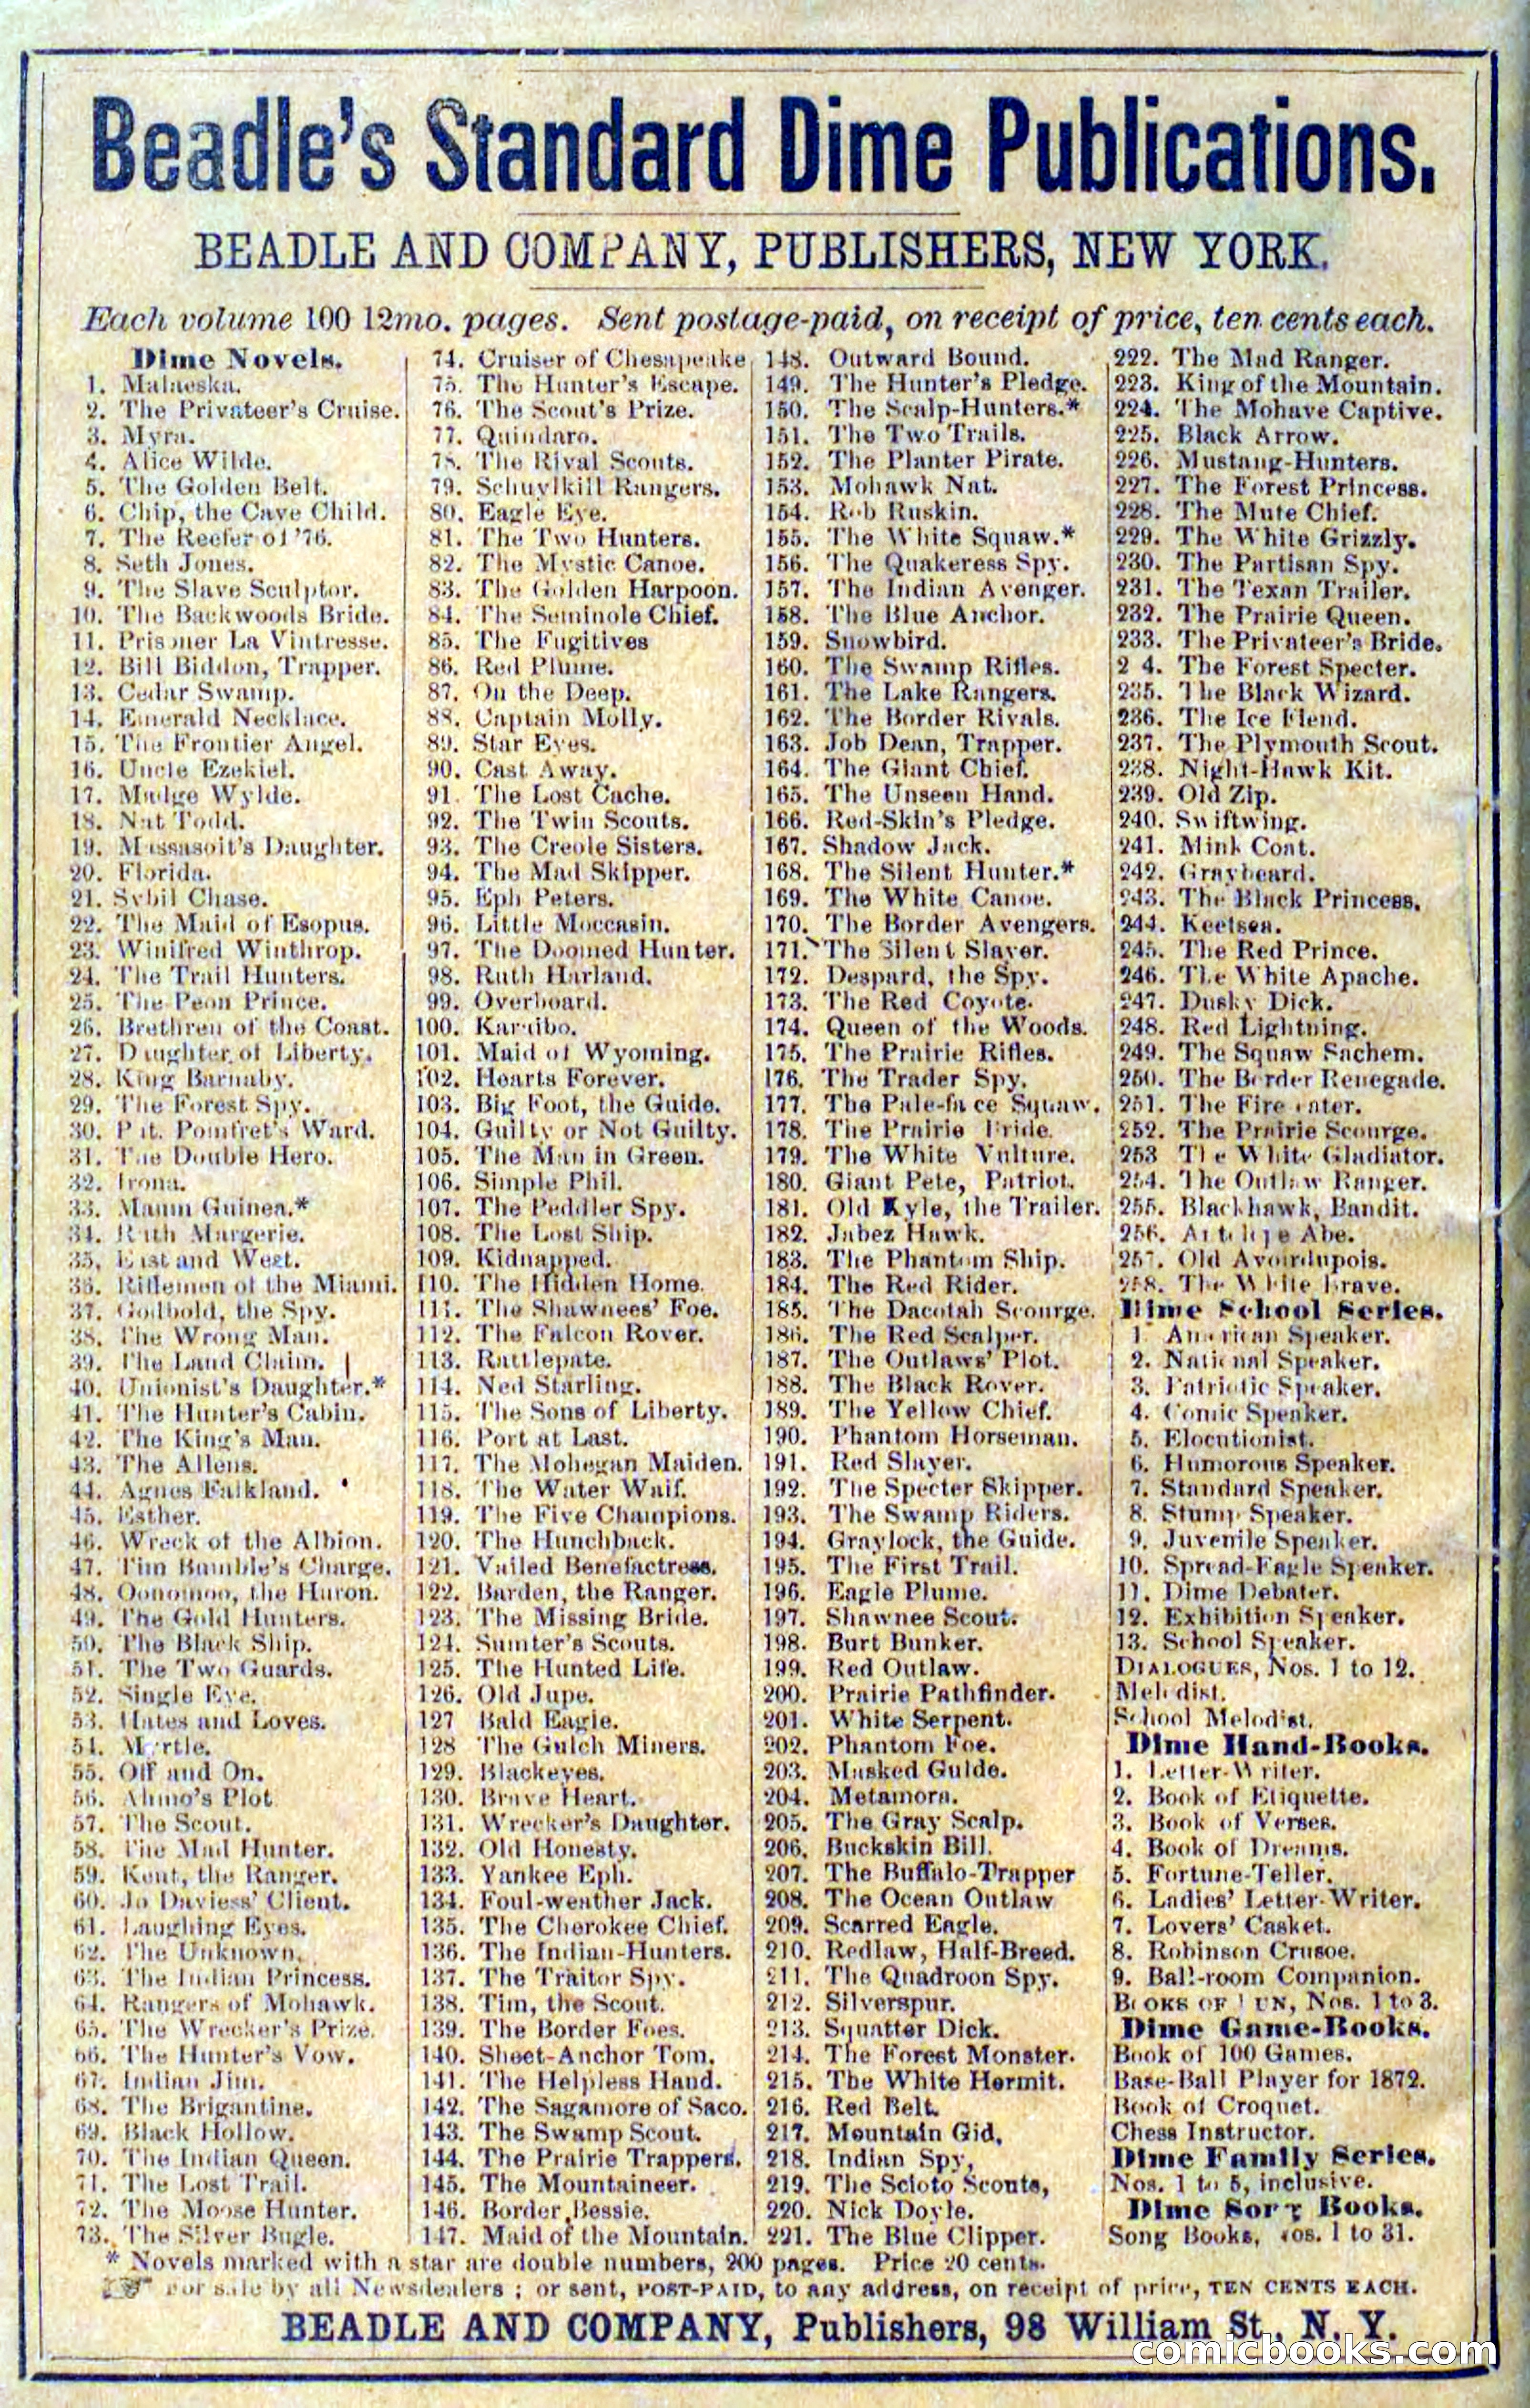 Beadle's Standard Dime Publications.
BEADLE AND COMPANY, PUBLISHERS, NEW YORK.
Each volume 100 12mo. pages. Sent postage-paid, on receipt of price, ten cents each.
Dime Novels.
1. Malaeska.
2. The Privateer's Cruise.
3. Myra.
4. Alice Wilde.
5. The Golden Belt.
6. Chip, the Cave Child.
7. The Reefer of '76.
8. Seth Jones.
9. The Slave Sculptor.
10. The Backwoods Bride.
11. Prisoner La Vintresse.
12. Bill Biddon, Trapper.
13. Cedar Swamp.
14. Emerald Necklace.
15. The Frontier Angel.
16. Uncle Ezekiel.
17. Madge Wylde.
18. Nat Todd.
19. Massasoit's Daughter.
20. Florida.
21. Sybil Chase.
22. The Maid of Esopus.
23. Winifred Winthrop.
24. The Trail Hunters.
25. The Peon Prince.
26. Brethren of the Coast.
27. Daughter of Liberty.
28. King Barnaby.
29. The Forest Spy.
30. Put. Pomfret's Ward.
31. The Double Hero.
32. Irona.
33. Maum Guinea.*
34. Ruth Margerie.
35. East and West.
36. Riflemen of the Miami.
37. Godbold, the Spy.
38. The Wrong Man.
39. The Land Claim.
40. Unionist's Daughter.*
41. The Hunter's Cabin.
42. The King's Man.
43. The Allens.
44. Agnes Falkland.
45. Esther.
46. Wreck of the Albion.
47. Tim Bumble's Charge.
48. Oonomoo, the Huron.
49. The Gold Hunters.
50. The Black Ship.
51. The Two Guards.
52. Single Eye.
53. Hates and Loves.
54. Myrtle.
55. Off and On.
56. Ahmo's Plot
57. The Scout.
58. The Mad Hunter.
59. Kent, the Ranger.
60. Jo Daviess' Client.
61. Laughing Eyes.
62. The Unknown.
63. The Indian Princess.
64. Rangers of Mohawk.
65. The Wrecker's Prize.
66. The Hunter's Vow.
67. Indian Jim.
68. The Brigantine.
69. Black Hollow.
70. The Indian Queen.
71. The Lost Trail.
72. The Moose Hunter.
73. The Silver Bugle.
74. Cruiser of Chesapeake
75. The Hunter's Escape.
76. The Scout's Prize.
77. Quindaro.
78. The Rival Scouts.
79. Schuylkill Rangers.
80. Eagle Eye.
81. The Two Hunters.
82. The Mystic Canoe.
83. The Golden Harpoon.
84. The Seminole Chief.
85. The Fugitives
86. Red Plume.
87. On the Deep.
88. Captain Molly.
89. Star Eyes.
90. Cast Away.
91. The Lost Cache.
92. The Twin Scouts.
93. The Creole Sisters.
94. The Mad Skipper.
95. Eph Peters.
96. Little Moccasin.
97. The Doomed Hunter.
98. Ruth Harland.
99. Overboard.
100. Karaibo.
101. Maid of Wyoming.
102. Hearts Forever.
103. Big Foot, the Guide.
104. Guilty or Not Guilty.
105. The Man in Green.
106. Simple Phil.
107. The Peddler Spy.
108. The Lost Ship.
109. Kidnapped.
110. The Hidden Home.
111. The Shawnees' Foe.
112. The Falcon Rover.
113. Rattlepate.
114. Ned Starling.
115. The Sons of Liberty.
116. Port at Last.
117. The Mohegan Maiden.
118. The Water Waif.
119. The Five Champions.
120. The Hunchback.
121. Vailed Benefactress.
122. Barden, the Ranger.
123. The Missing Bride.
124. Sumter's Scouts.
125. The Hunted Life.
126. Old Jupe.
127 Bald Eagle.
128 The Gulch Miners.
129. Blackeyes.
130. Brave Heart.
131. Wrecker's Daughter.
132. Old Honesty.
133. Yankee Eph.
134. Foul-weather Jack.
135. The Cherokee Chief.
136. The Indian-Hunters.
137. The Traitor Spy.
138. Tim, the Scout.
139. The Border Foes.
140. Sheet-Anchor Tom.
141. The Helpless Hand.
142. The Sagamore of Saco.
143. The Swamp Scout.
144. The Prairie Trappers.
145. The Mountaineer.
146. Border Bessie.
147. Maid of the Mountain.
148. Outward Bound.
149. The Hunter's Pledge.
150. The Scalp-Hunters.*
151. The Two Trails.
152. The Planter Pirate.
153. Mohawk Nat.
154. Rob Ruskin.
155. The White Squaw.*
156. The Quakeress Spy.
157. The Indian Avenger.
158. The Blue Anchor.
159. Snowbird.
160. The Swamp Rifles.
161. The Lake Rangers.
162. The Border Rivals.
163. Job Dean, Trapper.
164. The Giant Chief.
165. The Unseen Hand.
166. Red-Skin's Pledge.
167. Shadow Jack.
168. The Silent Hunter.*
169. The White Canoe.
170. The Border Avengers.
171. The Silent Slayer.
172. Despard, the Spy.
173. The Red Coyote.
174. Queen of the Woods.
175. The Prairie Rifles.
176. The Trader Spy.
177. The Pale-face Squaw.
178. The Prairie Bride.
179. The White Vulture.
180. Giant Pete, Patriot.
181. Old Kyle, the Trailer.
182. Jabez Hawk.
183. The Phantom Ship.
184. The Red Rider.
185. The Dacotah Scourge.
186. The Red Scalper.
187. The Outlaws' Plot.
188. The Black Rover.
189. The Yellow Chief.
190. Phantom Horseman.
191. Red Slayer.
192. The Specter Skipper.
193. The Swamp Riders.
194. Graylock, the Guide.
195. The First Trail.
196. Eagle Plume.
197. Shawnee Scout.
198. Burt Bunker.
199. Red Outlaw.
200. Prairie Pathfinder.
201. White Serpent.
202. Phantom Foe.
203. Masked Guide.
204. Metamora.
205. The Gray Scalp.
206. Buckskin Bill.
207. The Buffalo-Trapper
208. The Ocean Outlaw
209. Scarred Eagle.
210. Redlaw, Half-Breed.
211. The Quadroon Spy.
212. Silverspur.
213. Squatter Dick.
214. The Forest Monster.
215. The White Hermit.
216. Red Belt.
217. Mountain Gid,
218. Indian Spy,
219. The Scioto Scouts,
220. Nick Doyle.
221. The Blue Clipper.
222. The Mad Ranger.
223. King of the Mountain.
224. The Mohave Captive.
225. Black Arrow.
226. Mustang-Hunters.
227. The Forest Princess.
228. The Mute Chief.
229. The White Grizzly.
230. The Partisan Spy.
231. The Texan Trailer.
232. The Prairie Queen.
233. The Privateer's Bride.
2 4. The Forest Specter.
235. The Black Wizard.
236. The Ice Fiend.
237. The Plymouth Scout.
238. Night-Hawk Kit.
239. Old Zip.
240. Swiftwing.
241. Mink Coat.
242. Graybeard.
243. The Black Princess.
244. Keetsea.
245. The Red Prince.
246. The White Apache.
247. Dusky Dick.
248. Red Lightning.
249. The Squaw Sachem.
250. The Border Renegade.
251. The Fire eater.
252. The Prairie Scourge.
253 The White Gladiator.
254. The Outlaw Ranger.
255. Blackhawk, Bandit.
256. Antelope Abe.
257. Old Avoirdupois.
258. The White Brave.
Dime School Series.
1. American Speaker.
2. National Speaker.
3. Patriotic Speaker.
4. Comic Speaker.
5. Elocutionist.
6. Humorous Speaker.
7. Standard Speaker.
8. Stump Speaker.
9. Juvenile Speaker.
10. Spread-Eagle Speaker.
11. Dime Debater.
12. Exhibition Speaker.
13. School Speaker.
DIALOGUES, Nos. 1 to 12.
Melodist.
School Melodist.
Dime Hand-Books.
1. Letter-Writer.
2. Book of Etiquette.
3. Book of Verses.
4. Book of Dreams.
5. Fortune-Teller.
6. Ladies' Letter-Writer.
7. Lovers' Casket.
8. Robinson Crusoe.
9. Ball-room Companion.
BOOKS OF FUN, Nos. 1 to 3.
Dime Game-Books.
Book of 100 Games.
Base-Ball Player for 1872.
Book of Croquet.
Chess Instructor.
Dime Family Series.
Nos. 1 to 5, inclusive.
Dime Song Books.
Song Books, Nos. 1 to 31.
* Novels marked with a star are double numbers, 200 pages. Price 20 cents.
☞ For sale by all Newsdealers; or sent, POST-PAID, to any address, on receipt of price, TEN CENTS EACH.
BEADLE AND COMPANY, Publishers, 98 William St., N. Y.
comicbooks.com